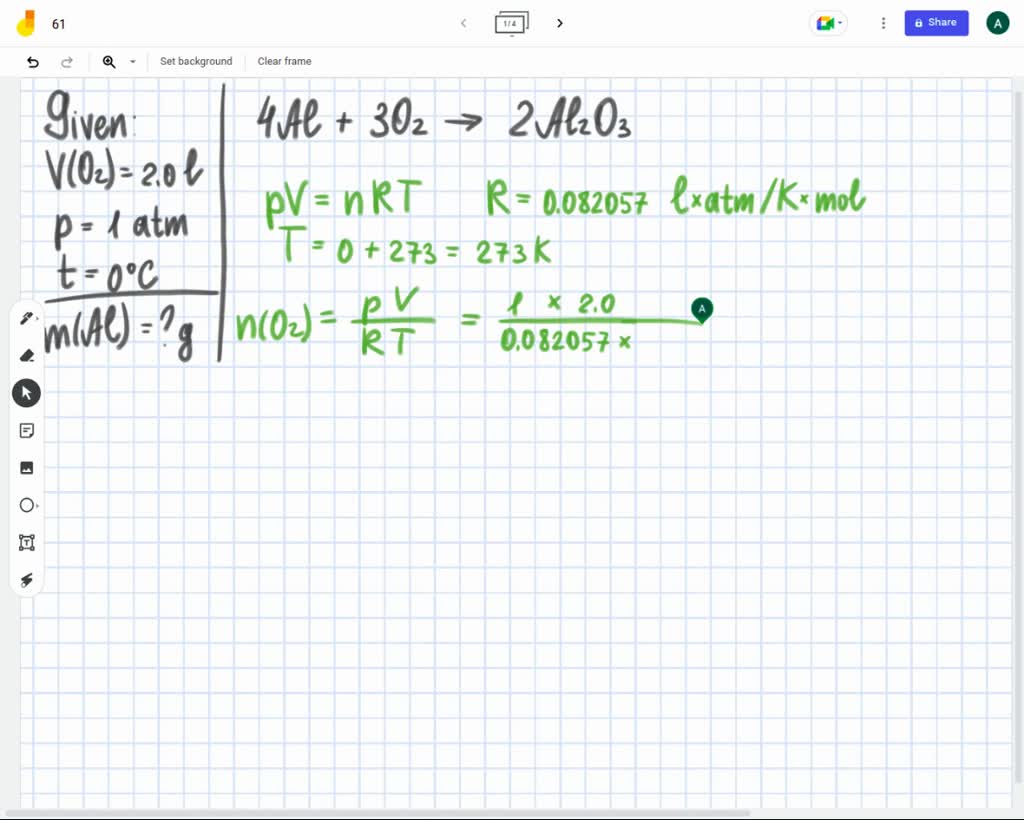 61
1/4
Share
A
Set background
Clear frame
Given:
V(O₂) = 2.0 l
p = 1 atm
t = 0°C
m(Al) = ? g
4Al + 3O₂ → 2Al₂O₃
pV = nRT R = 0.082057 l×atm/K×mol
T = 0 + 273 = 273 K
n(O₂) = pV / RT = 1 × 2.0 / 0.082057 ×
A
T